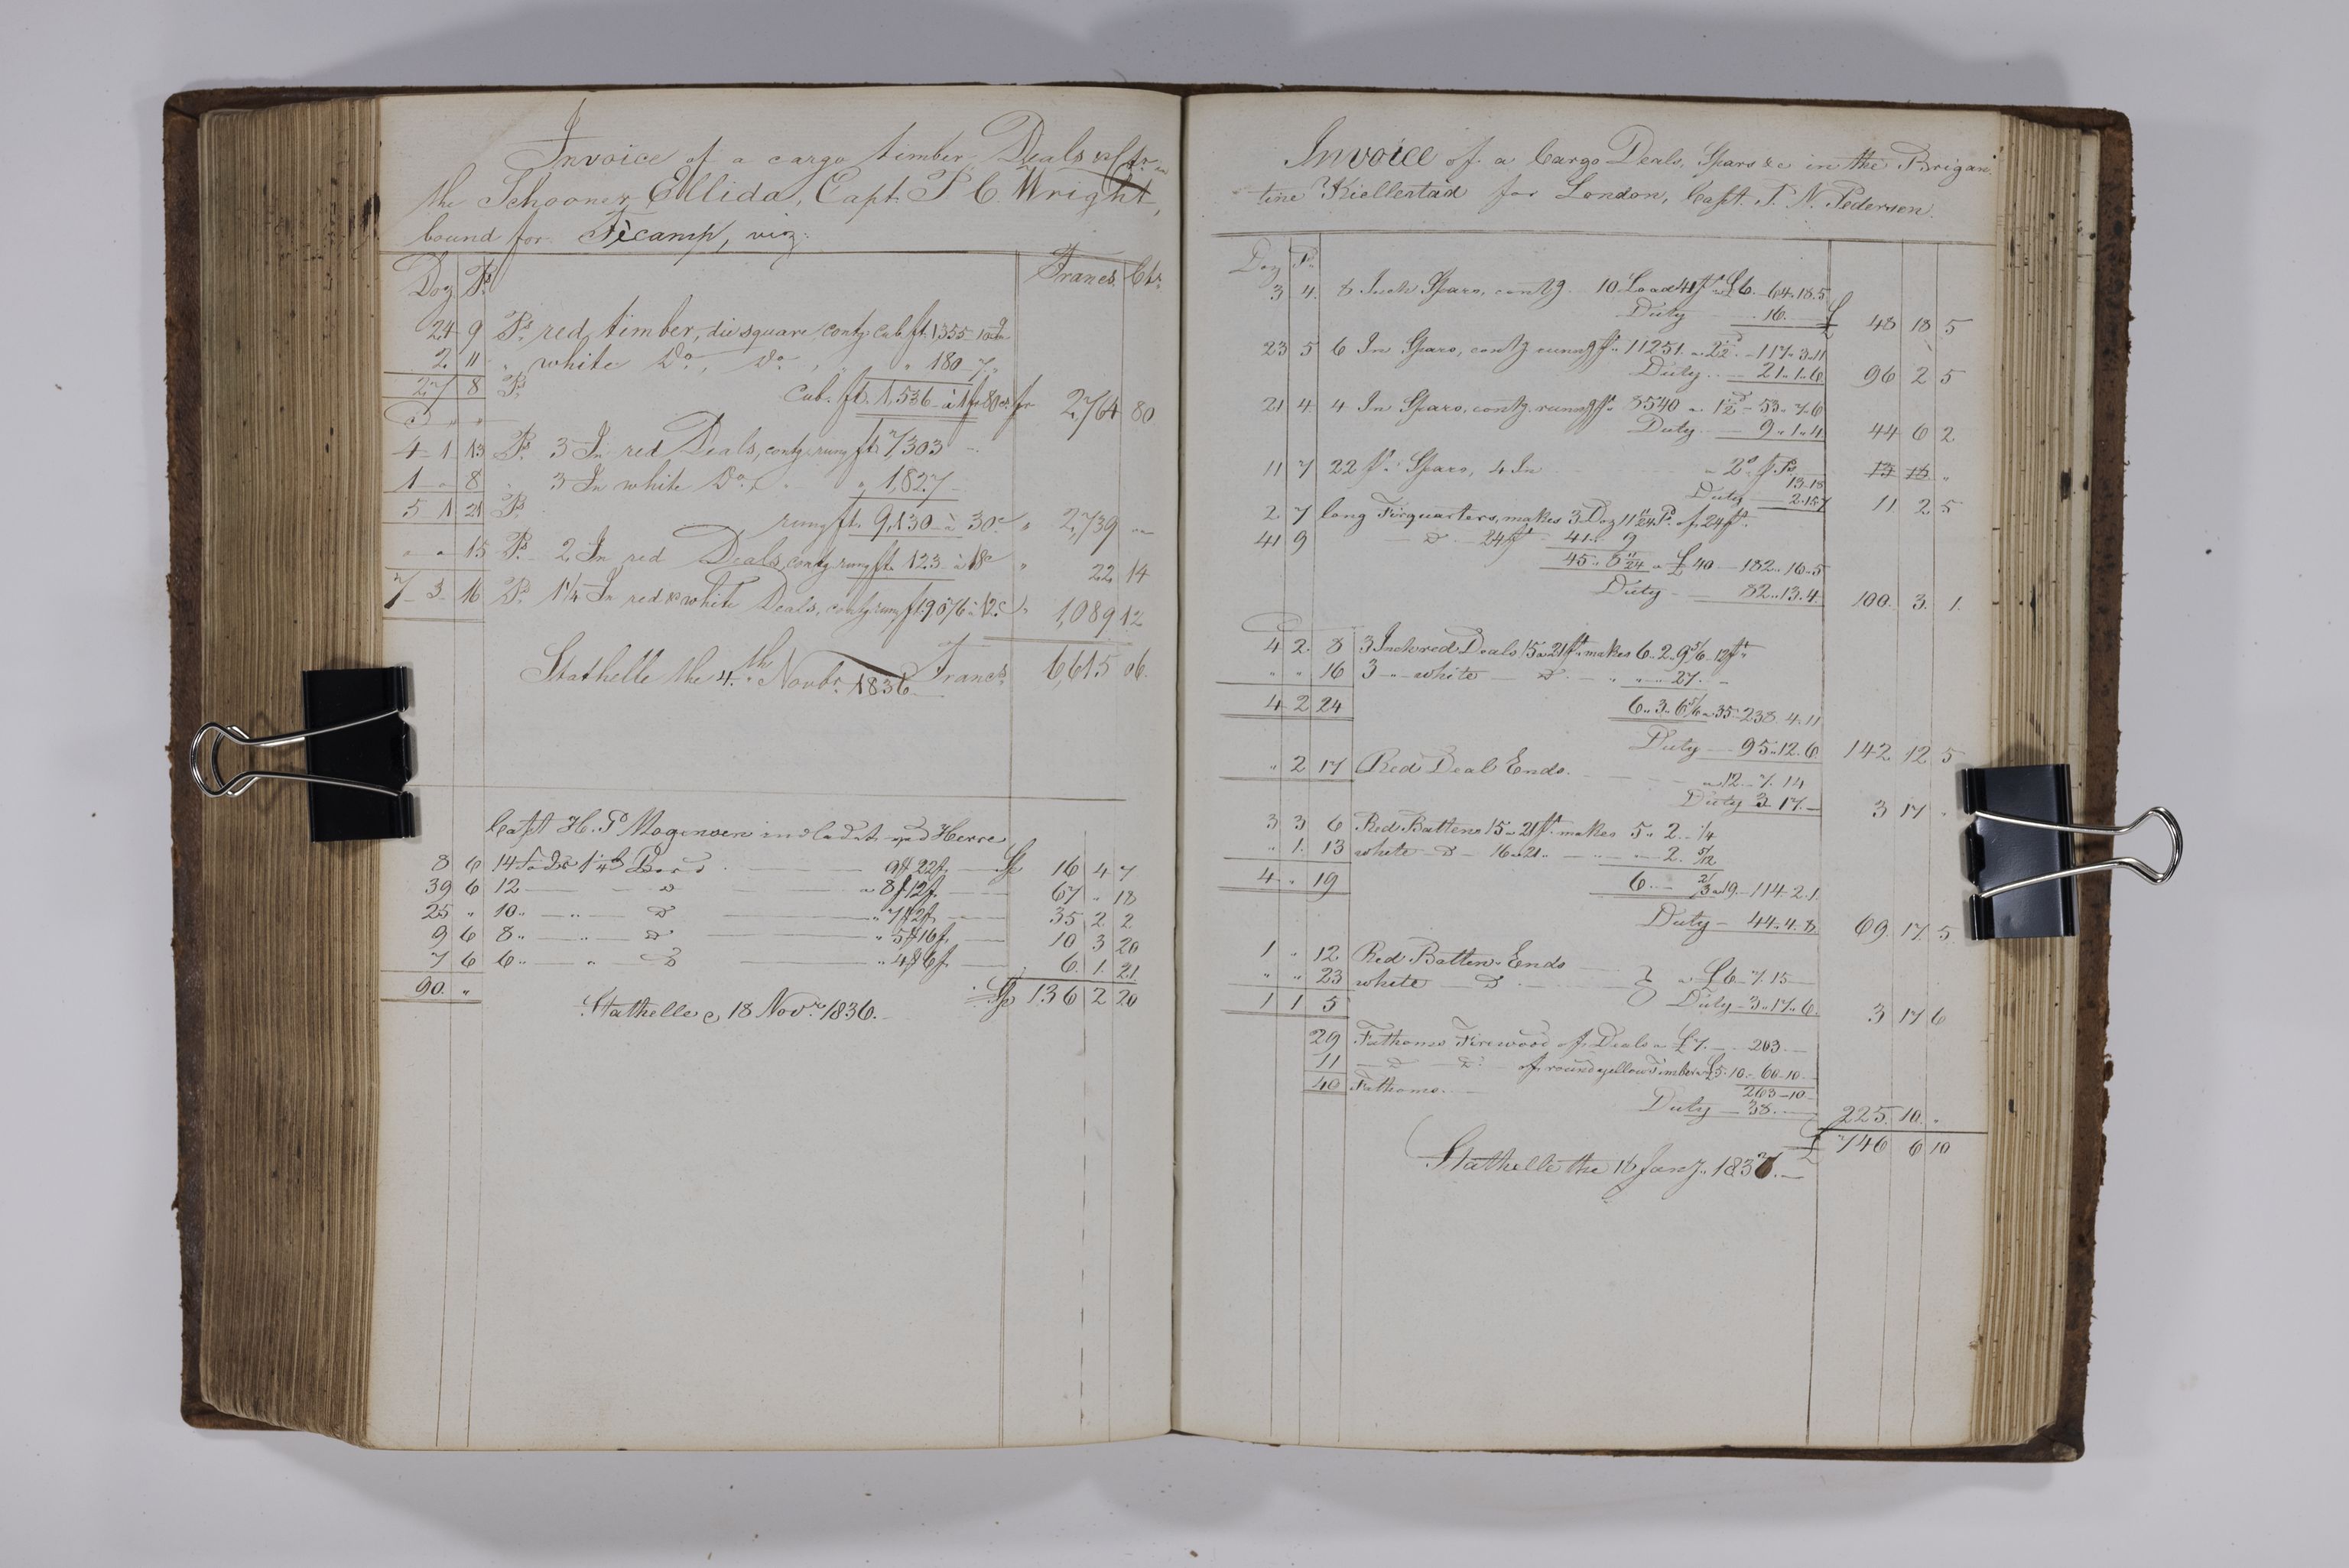 Invoice of a cargo timber, Deals &c &c in
the Schooner Ellida, Capt. P. C. Wright,
bound for Fècamp, viz:
Doz Ps Francs. Cts.
24 9 Ps. red timber, die square, contg. cub. ft. 1,355 10
2 11 " white Do., Do., " 180 7 "
27 8 Ps. cub. ft. 1,536 à 1 fr 80 cs. fr 2,764 80
4 1 13 Ps. 3 In red Deals, contg. rung ft. 7,303
1 " 8 " 3 In white Do., " 1,827
5 1 21 Ps. rung ft. 9,130 à 30c " 2,739 "
" " 15 Ps. 2 In red Deals, contg. rung ft. 123 à 18c " 22 14
7 3 16 Ps. 1¼ In red & white Deals, contg. rung ft. 9076 à 12c " 1,089 12
Stathelle the 4th Novbr. 1836. Francs 6,615 06.
Capt H. P. Mogensen indladet ved Herre
8 6 14 fods 1¼ Bord 9 22 Sp 16 4 7
39 6 12 — D — " 8 12 67 " 18
25 " 10 " — " — D — " 7 2 35 2 2
9 6 8 " — " — D — " 5 16 10 3 20
7 6 6 " — " — D — " 4 6 6 1 21
90. " Sp 136 2 20
Stathelle d 18 Novr. 1836.
Invoice of a Cargo Deals, Spars &c in the Brigan
tine Kiellestad for London, Capt. P. N. Pedersen.
Doz Ps.
3 4. 8 Inch Spars, contg. 10 Load 41 ft. a £6. 64.18.5
Duty 16. — £ 48 18 5
23 5 6 In Spars, contg rung ft. 11251. a 2½ d — 117.3.11
Duty — 21.1.6 96 2 5
21 4. 4 In Spars, contg. rung ft. 8540 a 1½ d — 53.7.6
Duty — 9.1.4 44 6 2
11 7 22 ft. Spars, 4 In " 2s. p Ps. 13 18 "
13.18
Duty — 2.15.7 11 2 5
2 7 long Firquarters, makes 3 Doz 11 11/24 Ps. of 24 ft.
41 9 — D — 24 ft 41. 9
45. 8 11/24 a £40 — 182.16.5
Duty — 82.13.4. 100. 3. 1.
4 2. 8 3 Inch red Deals 15 a 21 ft. makes 6. 2. 9 5/6 12 ft.
" " 16 3 " white — D — " " 27. —
4 2 24 6. 3. 6 5/6 a 35 238. 4. 11
Duty — 95.12.6 142 12 5
" 2 17 Red Deal Ends. a 12 — 7. 14
Duty 3 17. — 3 17 "
3 3 6 Red Battens 15 a 21 ft. makes 5. 2. ¼
" 1. 13 white — D — 16 a 21 " — " — 2. 5/12
4 " 19 6. — 2/3 a 19 — 114. 2. 1.
Duty — 44.4.8. 69. 17. 5.
1 " 12. Red Batten Ends
" " 23 white — D } a £6 — 7. 15 —
1 1 5 Duty — 3.17.6. 3 17 6
29 Fathoms Firewood of Deals a £7. — 203 —
11 — D — D — of round yellow Timber a £5.10 — 60.10 —
40 Fathoms. 263 — 10 —
Duty — 38. — 225. 10. "
£ 746 6 10
Stathelle the 16 Jany. 1837. —